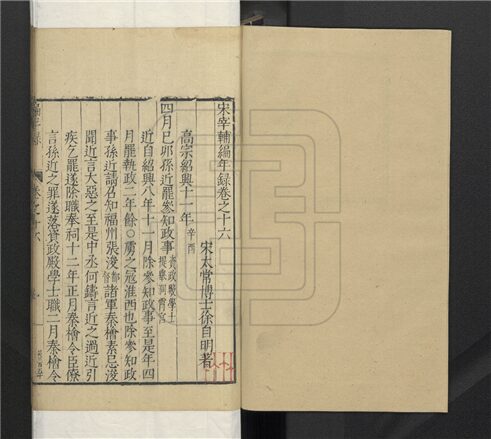 宋宰輔編年錄卷之十六
宋太常博士徐自明著
高宗紹興十一年辛酉
四月己卯孫近罷參知政事資政殿學士提舉洞霄宮
近自紹興八年十一月除參知政事至是年四
月罷執政二年餘○虜之寇淮西也除參知政
事孫近請召知福州張浚都督諸軍秦檜素忌浚
聞近言大惡之至是中丞何鑄言近之過近引
疾乞罷遂除職奉祠十二年正月秦檜令臣僚
言孫近之罪遂落資政殿學士職二月秦檜令
編年錄 卷之十六